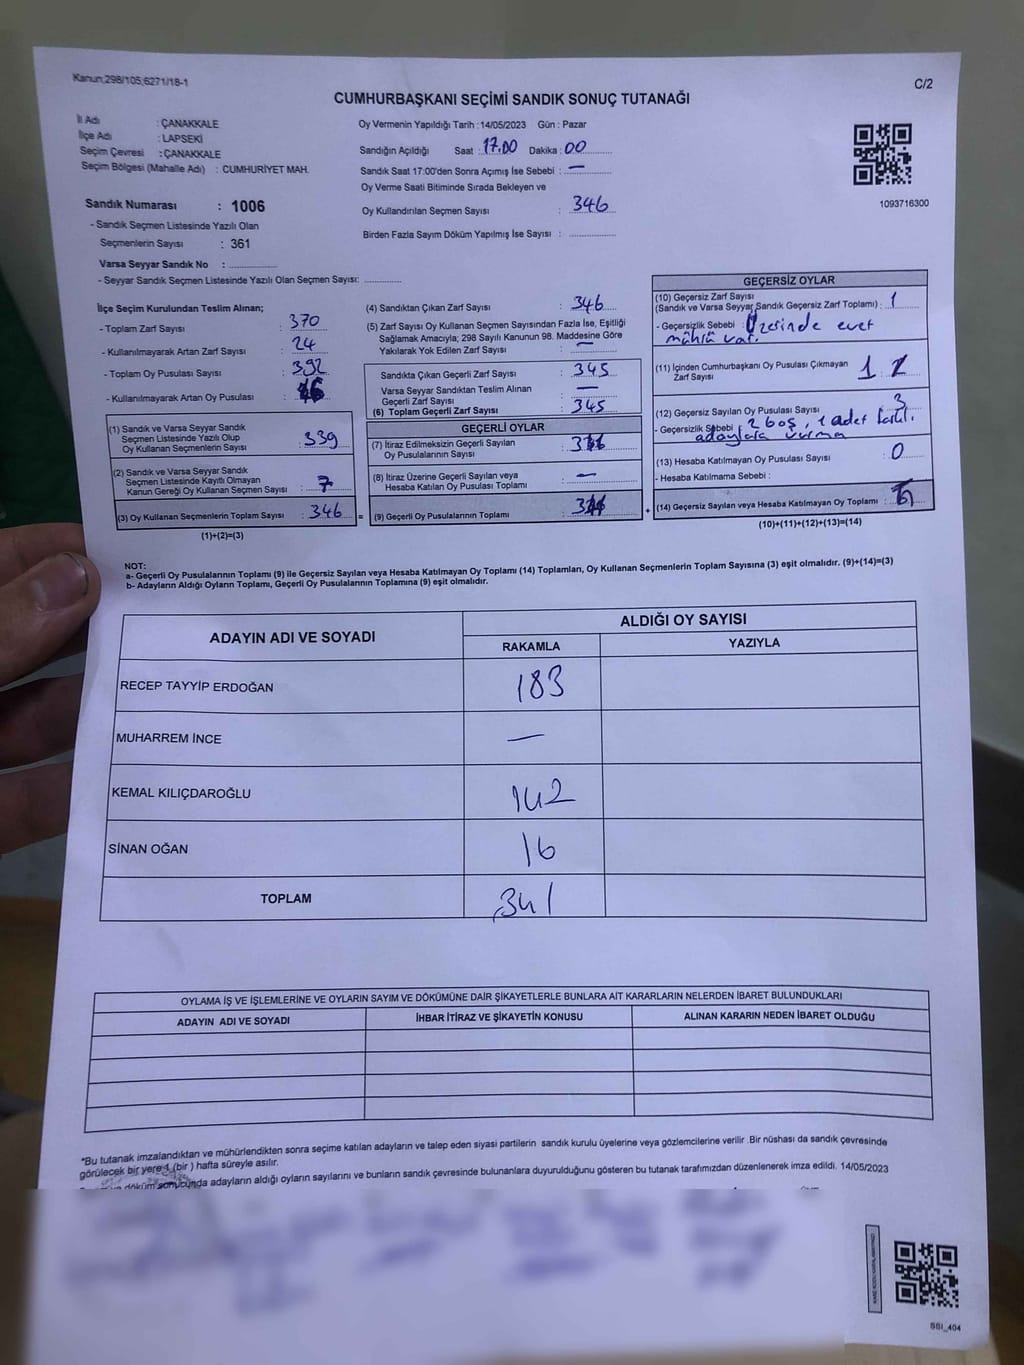 Kanun;298/105,6271/18-1
C/2
CUMHURBAŞKANI SEÇİMİ SANDIK SONUÇ TUTANAĞI
İl Adı : ÇANAKKALE
İlçe Adı : LAPSEKİ
Seçim Çevresi : ÇANAKKALE
Seçim Bölgesi (Mahalle Adı) : CUMHURİYET MAH.
Sandık Numarası : 1006
- Sandık Seçmen Listesinde Yazılı Olan
Seçmenlerin Sayısı : 361
Varsa Seyyar Sandık No :
- Seyyar Sandık Seçmen Listesinde Yazılı Olan Seçmen Sayısı:
Oy Vermenin Yapıldığı Tarih : 14/05/2023 Gün : Pazar
Sandığın Açıldığı Saat : 17.00 Dakika : 00
Sandık Saat 17:00'den Sonra Açımış İse Sebebi : —
Oy Verme Saati Bitiminde Sırada Bekleyen ve
Oy Kullandırılan Seçmen Sayısı : 346
Birden Fazla Sayım Döküm Yapılmış İse Sayısı :
1093716300
İlçe Seçim Kurulundan Teslim Alınan;
- Toplam Zarf Sayısı : 370
- Kullanılmayarak Artan Zarf Sayısı : 24
- Toplam Oy Pusulası Sayısı : 392
- Kullanılmayarak Artan Oy Pusulası :
(1) Sandık ve Varsa Seyyar Sandık
Seçmen Listesinde Yazılı Olup
Oy Kullanan Seçmenlerin Sayısı : 339
(2) Sandık ve Varsa Seyyar Sandık
Seçmen Listesinde Kayıtlı Olmayan
Kanun Gereği Oy Kullanan Seçmen Sayısı : 7
(3) Oy Kullanan Seçmenlerin Toplam Sayısı : 346
(1)+(2)=(3)
=
(4) Sandıktan Çıkan Zarf Sayısı : 346
(5) Zarf Sayısı Oy Kullanan Seçmen Sayısından Fazla İse, Eşitliği
Sağlamak Amacıyla; 298 Sayılı Kanunun 98. Maddesine Göre
Yakılarak Yok Edilen Zarf Sayısı : —
Sandıkta Çıkan Geçerli Zarf Sayısı : 345
Varsa Seyyar Sandıktan Teslim Alınan
Geçerli Zarf Sayısı : —
(6) Toplam Geçerli Zarf Sayısı : 345
GEÇERLİ OYLAR
(7) İtiraz Edilmeksizin Geçerli Sayılan
Oy Pusulalarının Sayısı :
(8) İtiraz Üzerine Geçerli Sayılan veya
Hesaba Katılan Oy Pusulası Toplamı : —
(9) Geçerli Oy Pusulalarının Toplamı :
+
GEÇERSİZ OYLAR
(10) Geçersiz Zarf Sayısı
(Sandık ve Varsa Seyyar Sandık Geçersiz Zarf Toplamı) : 1
- Geçersizlik Sebebi : Üzerinde evet
mührü var.
(11) İçinden Cumhurbaşkanı Oy Pusulası Çıkmayan
Zarf Sayısı : 1
(12) Geçersiz Sayılan Oy Pusulası Sayısı : 3
- Geçersizlik Sebebi : 2 boş, 1 adet farklı
adaylara vurma
(13) Hesaba Katılmayan Oy Pusulası Sayısı : 0
- Hesaba Katılmama Sebebi :
(14) Geçersiz Sayılan veya Hesaba Katılmayan Oy Toplamı :
(10)+(11)+(12)+(13)=(14)
NOT:
a- Geçerli Oy Pusulalarının Toplamı (9) ile Geçersiz Sayılan veya Hesaba Katılmayan Oy Toplamı (14) Toplamları, Oy Kullanan Seçmenlerin Toplam Sayısına (3) eşit olmalıdır. (9)+(14)=(3)
b- Adayların Aldığı Oyların Toplamı, Geçerli Oy Pusulalarının Toplamına (9) eşit olmalıdır.
ADAYIN ADI VE SOYADI
ALDIĞI OY SAYISI
RAKAMLA YAZIYLA
RECEP TAYYİP ERDOĞAN 183
MUHARREM İNCE —
KEMAL KILIÇDAROĞLU 142
SİNAN OĞAN 16
TOPLAM 341
OYLAMA İŞ VE İŞLEMLERİNE VE OYLARIN SAYIM VE DÖKÜMÜNE DAİR ŞİKAYETLERLE BUNLARA AİT KARARLARIN NELERDEN İBARET BULUNDUKLARI
ADAYIN ADI VE SOYADI İHBAR İTİRAZ VE ŞİKAYETİN KONUSU ALINAN KARARIN NEDEN İBARET OLDUĞU
*Bu tutanak imzalandıktan ve mühürlendikten sonra seçime katılan adayların ve talep eden siyasi partilerin sandık kurulu üyelerine veya gözlemcilerine verilir .Bir nüshası da sandık çevresinde
görülecek bir yere 1 (bir ) hafta süreyle asılır.
döküm sonucunda adayların aldığı oyların sayılarını ve bunların sandık çevresinde bulunanlara duyurulduğunu gösteren bu tutanak tarafımızdan düzenlenerek imza edildi. 14/05/2023
SSI_404